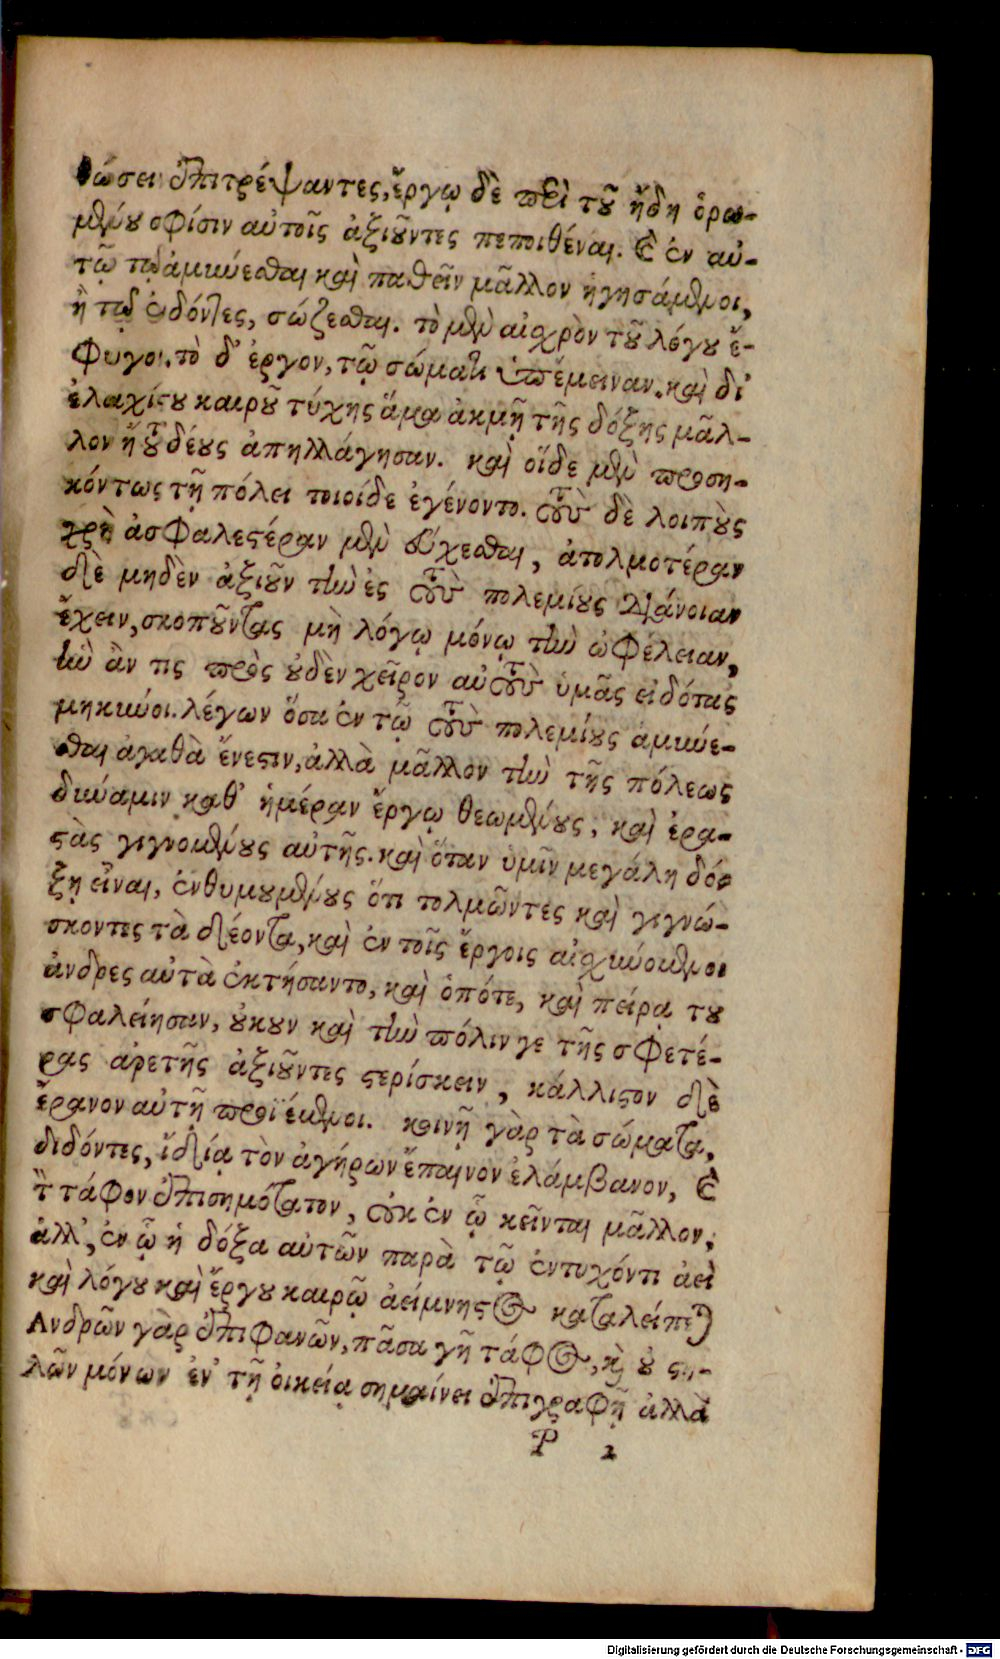 θώσει ἐπιτρέψαντες, ἔργῳ δὲ περὶ τοῦ ἤδη ὁρω-
μένου σφίσιν αὐτοῖς ἀξιοῦντες πεποιθέναι. καὶ ἐν αὐ-
τῷ τῷ ἀμύνεσθαι καὶ παθεῖν μᾶλλον ἡγησάμενοι,
ἢ τῷ ἐνδόντες, σώζεσθαι. τὸ μὲν αἰσχρὸν τοῦ λόγου ἔ-
φυγον. τὸ δ' ἔργον, τῷ σώματι ὑπέμειναν. καὶ δι'
ἐλαχίστου καιροῦ τύχης ἅμα ἀκμῇ τῆς δόξης μᾶλ-
λον ἢ τοῦ δέους ἀπηλλάγησαν. καὶ οἵδε μὲν προση-
κόντως τῇ πόλει τοιοίδε ἐγένοντο. τοὺς δὲ λοιποὺς
χρὴ ἀσφαλεστέραν μὲν εὔχεσθαι, ἀτολμοτέραν
δὲ μηδὲν ἀξιοῦν τὴν ἐς τοὺς πολεμίους διάνοιαν
ἔχειν, σκοποῦντας μὴ λόγῳ μόνῳ τὴν ὠφέλειαν,
ἣν ἄν τις πρὸς οὐδὲν χεῖρον αὐτοὺς ὑμᾶς εἰδότας
μηκύνοι. λέγων ὅσα ἐν τῷ τοὺς πολεμίους ἀμύνε-
σθαι ἀγαθὰ ἔνεστιν, ἀλλὰ μᾶλλον τὴν τῆς πόλεως
δύναμιν καθ' ἡμέραν ἔργῳ θεωμένους, καὶ ἐρα-
στὰς γιγνομένους αὐτῆς. καὶ ὅταν ὑμῖν μεγάλη δό-
ξῃ εἶναι, ἐνθυμουμένους ὅτι τολμῶντες καὶ γιγνώ-
σκοντες τὰ δέοντα, καὶ ἐν τοῖς ἔργοις αἰσχυνόμενοι
ἄνδρες αὐτὰ ἐκτήσαντο, καὶ ὁπότε, καὶ πείρᾳ του
σφαλείησαν, οὐκουν καὶ τὴν πόλιν γε τῆς σφετέ-
ρας ἀρετῆς ἀξιοῦντες στερίσκειν, κάλλιστον δὲ
ἔρανον αὐτῇ προϊέμενοι. κοινῇ γὰρ τὰ σώματα,
διδόντες, ἰδίᾳ τὸν ἀγήρων ἔπαινον ἐλάμβανον, καὶ
τὸν τάφον ἐπισημότατον, οὐκ ἐν ᾧ κεῖνται μᾶλλον,
ἀλλ', ἐν ᾧ ἡ δόξα αὐτῶν παρὰ τῷ ἐντυχόντι ἀεὶ
καὶ λόγου καὶ ἔργου καιρῷ ἀείμνηστος καταλείπεται
Ἀνδρῶν γὰρ ἐπιφανῶν, πᾶσα γῆ τάφος, καὶ οὐ στη-
λῶν μόνων ἐν τῇ οἰκείᾳ σημαίνει ἐπιγραφῇ ἀλλὰ
P 2
Digitalisierung gefördert durch die Deutsche Forschungsgemeinschaft - DFG